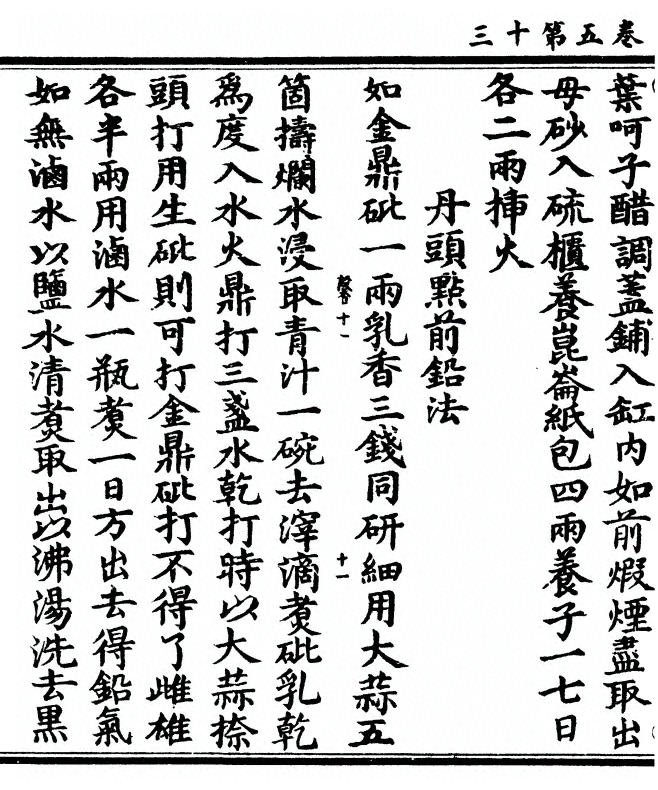 三十第五卷
葉呵子醋調蓋鋪入缸內如前煆煙盡取出
母砂入硫櫃養崑崙紙包四兩養子一七日
各二兩揷火
丹頭點前鉛法
如金鼎砒一兩乳香三錢同研細用大蒜五
箇擣爛水浸取青汁一碗去滓滴煑砒乳乾
爲度入水火鼎打三盞水乾打時以大蒜捺
頭打用生砒則可打金鼎砒打不得了雌雄
各半兩用滷水一瓶煑一日方出去得鉛氣
如無滷水以鹽水清煑取出以沸湯洗去黑
十一
十一